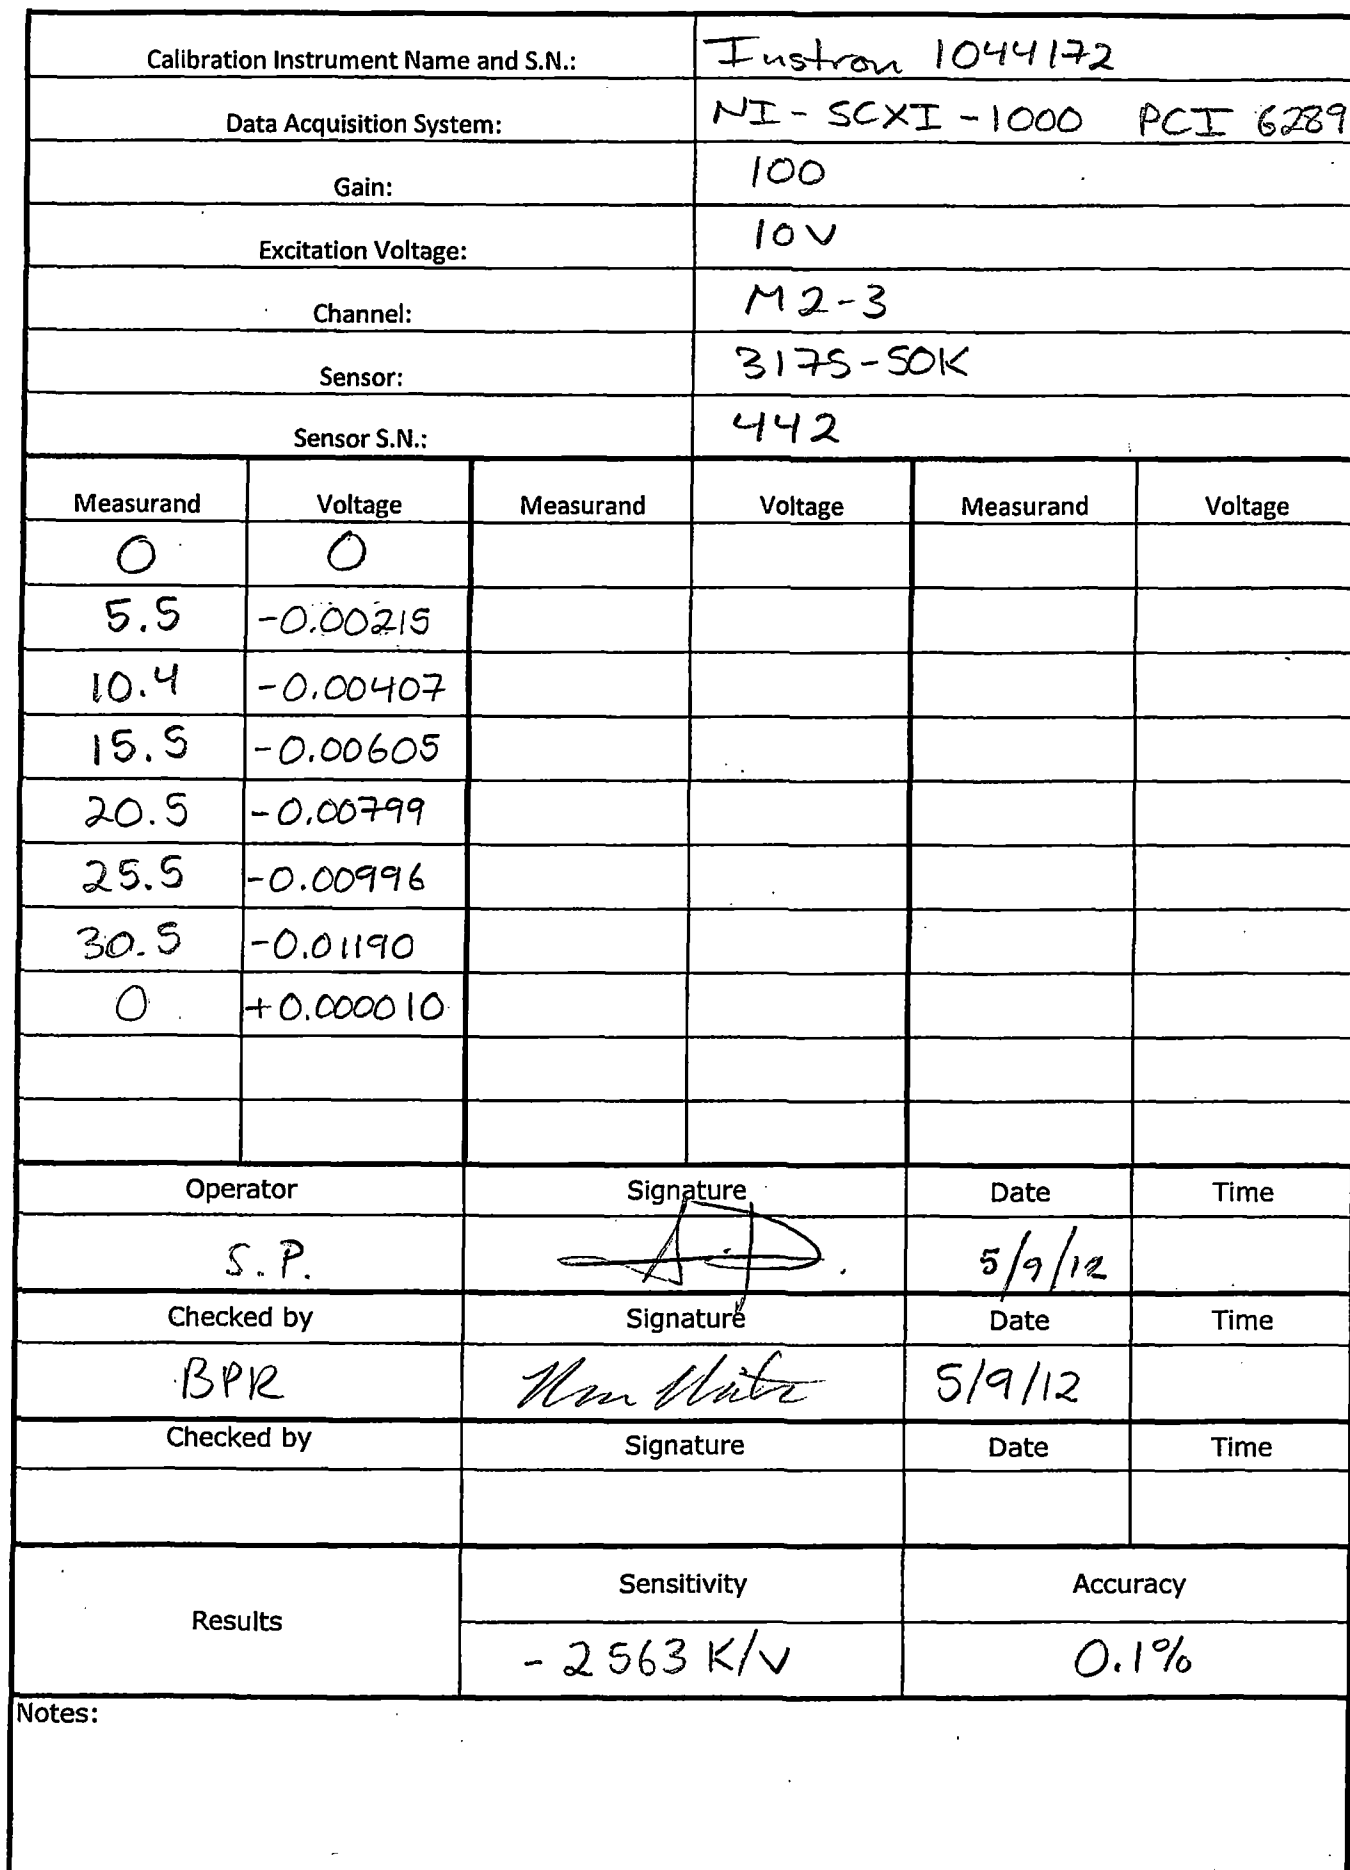 Calibration Instrument Name and S.N.: Instron 1044172
Data Acquisition System: NI-SCXI-1000 PCI 6289
Gain: 100
Excitation Voltage: 10V
Channel: M2-3
Sensor: 3175-50K
Sensor S.N.: 442
Measurand Voltage Measurand Voltage Measurand Voltage
0 0
5.5 -0.00215
10.4 -0.00407
15.5 -0.00605
20.5 -0.00799
25.5 -0.00996
30.5 -0.01190
0 +0.000010
Operator Signature Date Time
S.P. 5/9/12
Checked by Signature Date Time
BPR 5/9/12
Checked by Signature Date Time
Results Sensitivity Accuracy
-2563 K/V 0.1%
Notes: